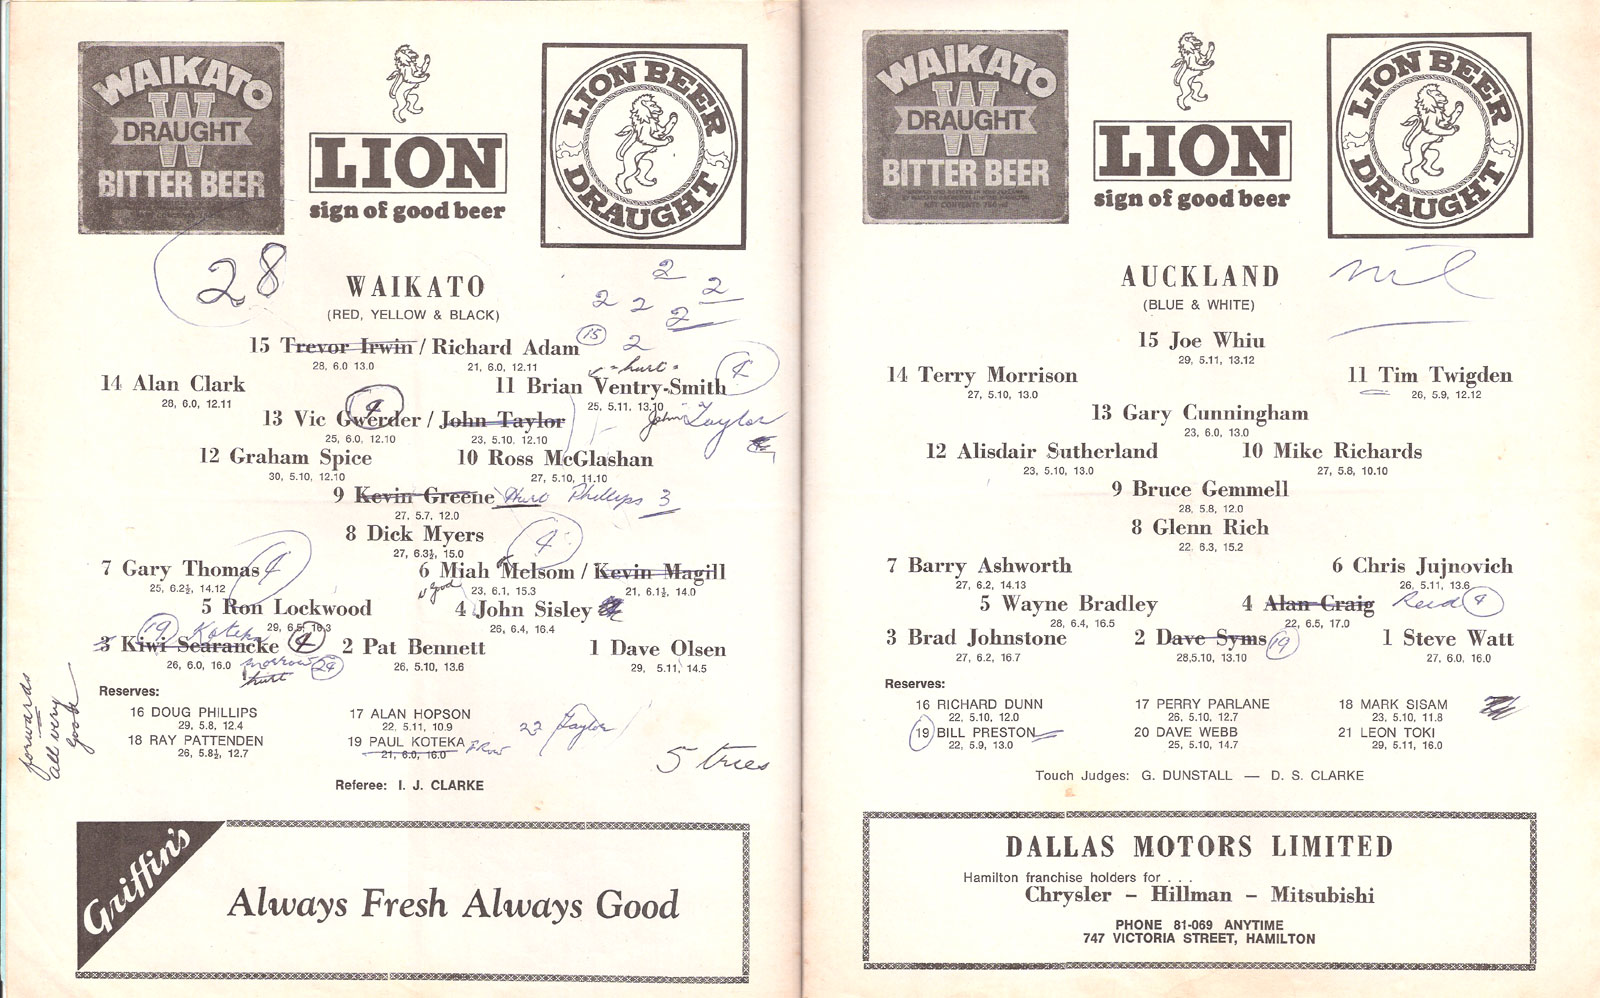 WAIKATO
W
DRAUGHT
BITTER BEER
LION
sign of good beer
LION BEER
DRAUGHT
28
WAIKATO
(RED, YELLOW & BLACK)
2
2 2 2
2
15 Trevor Irwin / Richard Adam 15 2
28, 6.0 13.0 21, 6.0, 12.11
"hurt" 4
14 Alan Clark 11 Brian Ventry-Smith
28, 6.0, 12.11 25, 5.11, 13.10
4
13 Vic Gwerder / John Taylor John Taylor
25, 6.0, 12.10 23, 5.10, 12.10
12 Graham Spice 10 Ross McGlashan
30, 5.10, 12.10 27, 5.10, 11.10
9 Kevin Greene Hurt Phillips 3
27, 5.7, 12.0
8 Dick Myers
27, 6.3½, 15.0
4
7 Gary Thomas 4 6 Miah Melsom / Kevin Magill
25, 6.2½, 14.12 good 23, 6.1, 15.3 21, 6.1½, 14.0
5 Ron Lockwood 4 John Sisley
29, 6.5, 16.3 26, 6.4, 16.4
19 Koteka
3 Kiwi Searancke 4 2 Pat Bennett 1 Dave Olsen
26, 6.0, 16.0 26, 5.10, 13.6 29, 5.11, 14.5
morrow 24
hurt
forwards
all very
good
Reserves:
16 DOUG PHILLIPS 17 ALAN HOPSON
29, 5.8, 12.4 22, 5.11, 10.9
22 Taylor
18 RAY PATTENDEN 19 PAUL KOTEKA F Row
26, 5.8½, 12.7 21, 6.0, 16.0
5 tries
Referee: I. J. CLARKE
Griffin's
Always Fresh Always Good
WAIKATO
W
DRAUGHT
BITTER BEER
LION
sign of good beer
LION BEER
DRAUGHT
AUCKLAND nil
(BLUE & WHITE)
15 Joe Whiu
29, 5.11, 13.12
14 Terry Morrison 11 Tim Twigden
27, 5.10, 13.0 26, 5.9, 12.12
13 Gary Cunningham
23, 6.0, 13.0
12 Alisdair Sutherland 10 Mike Richards
23, 5.10, 13.0 27, 5.8, 10.10
9 Bruce Gemmell
28, 5.8, 12.0
8 Glenn Rich
22, 6.3, 15.2
7 Barry Ashworth 6 Chris Jujnovich
27, 6.2, 14.13 26, 5.11, 13.6
5 Wayne Bradley 4 Alan Craig Reid 4
28, 6.4, 16.5 22, 6.5, 17.0
3 Brad Johnstone 2 Dave Syms 19 1 Steve Watt
27, 6.2, 16.7 28,5.10, 13.10 27, 6.0, 16.0
Reserves:
16 RICHARD DUNN 17 PERRY PARLANE 18 MARK SISAM
22, 5.10, 12.0 26, 5.10, 12.7 23, 5.10, 11.8
19 BILL PRESTON 20 DAVE WEBB 21 LEON TOKI
22, 5.9, 13.0 25, 5.10, 14.7 29, 5.11, 16.0
Touch Judges: G. DUNSTALL — D. S. CLARKE
DALLAS MOTORS LIMITED
Hamilton franchise holders for . . .
Chrysler – Hillman – Mitsubishi
PHONE 81-069 ANYTIME
747 VICTORIA STREET, HAMILTON